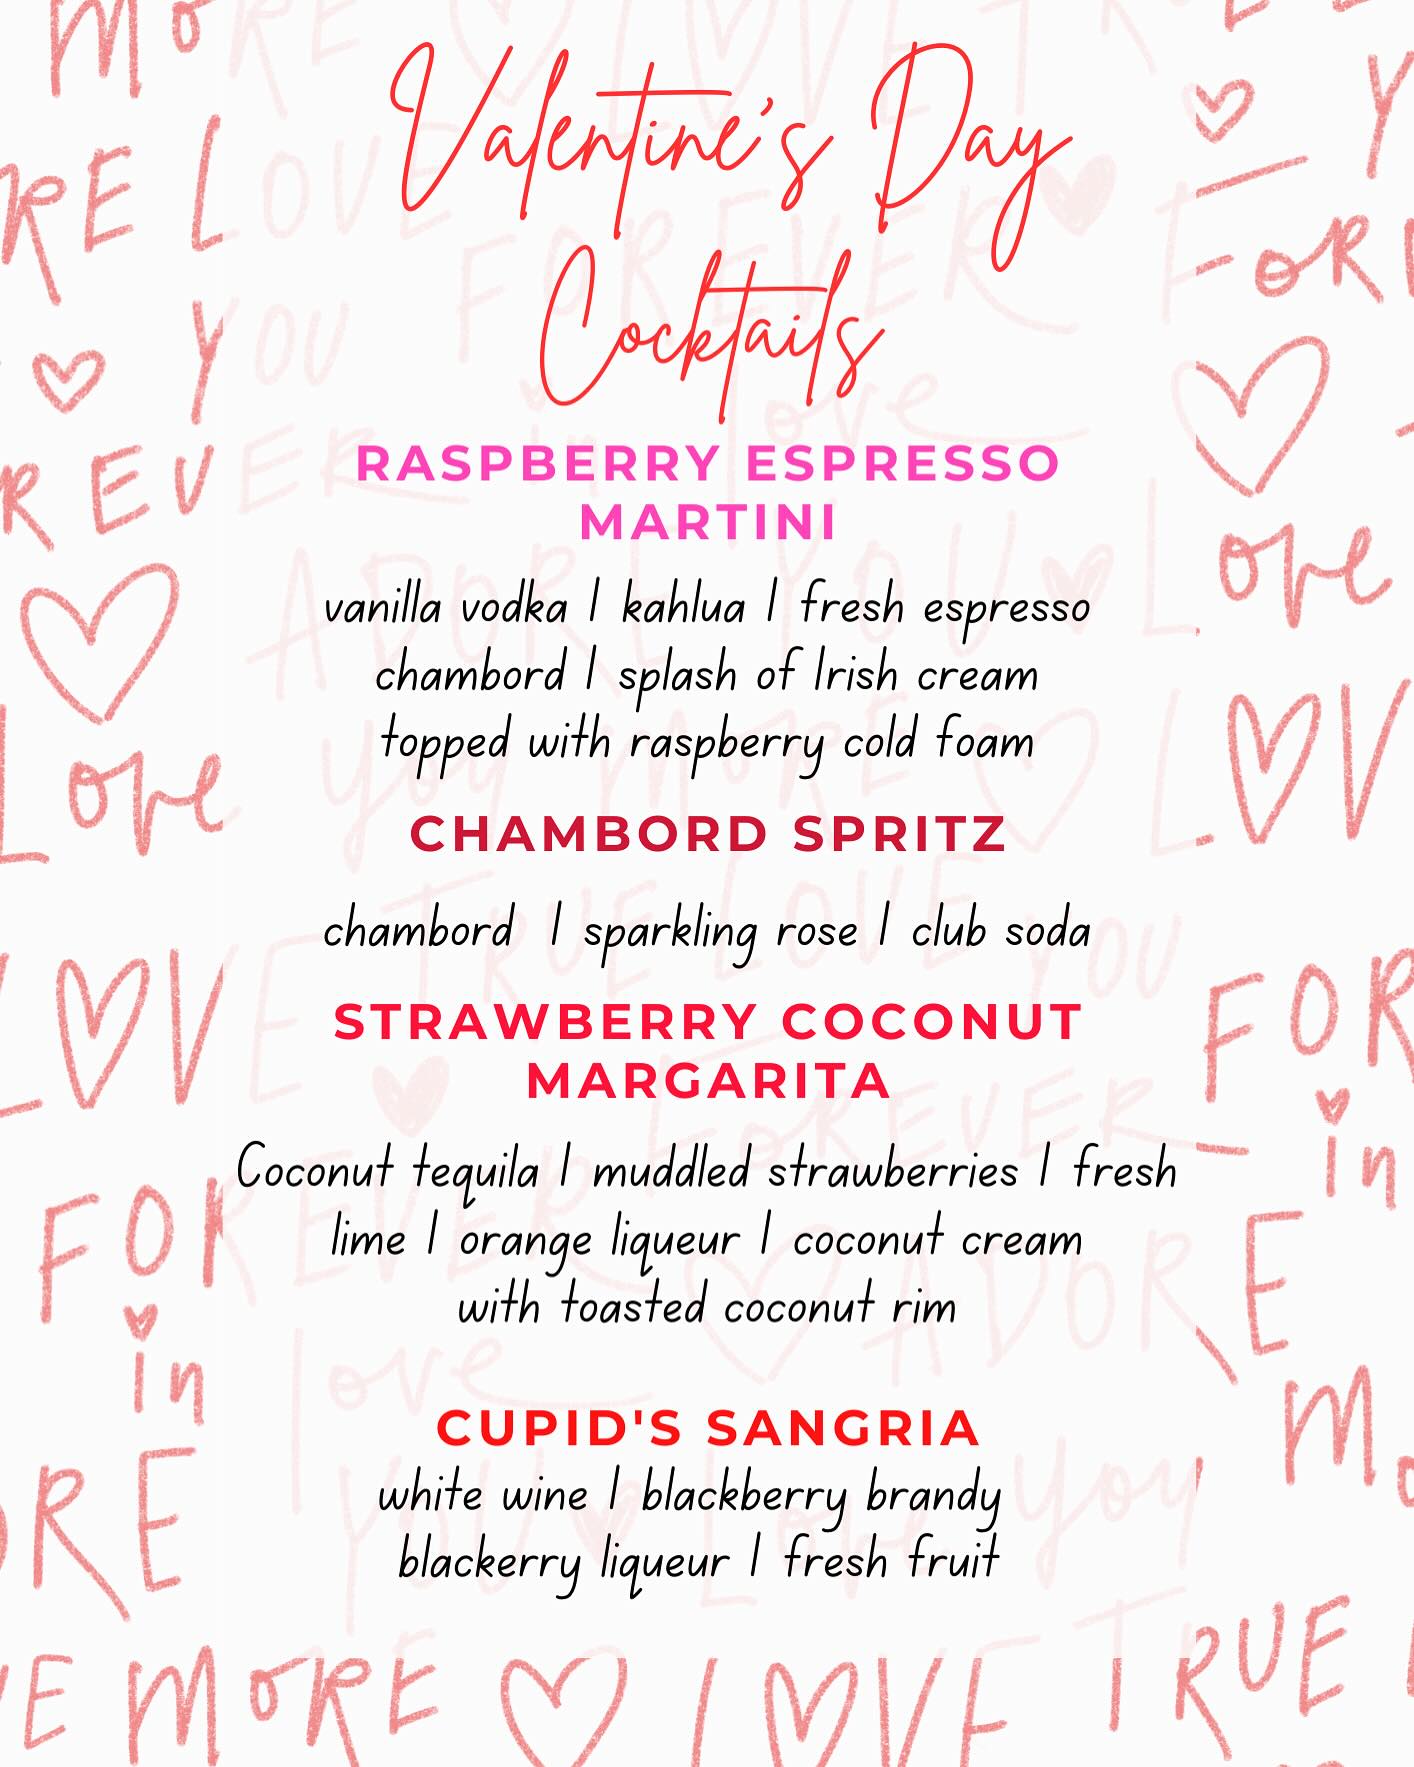 Valentine's Day
Cocktails
RASPBERRY ESPRESSO
MARTINI
vanilla vodka | kahlua | fresh espresso
chambord | splash of Irish cream
topped with raspberry cold foam
CHAMBORD SPRITZ
chambord | sparkling rose | club soda
STRAWBERRY COCONUT
MARGARITA
Coconut tequila | muddled strawberries | fresh
lime | orange liqueur | coconut cream
with toasted coconut rim
CUPID'S SANGRIA
white wine | blackberry brandy
blackerry liqueur | fresh fruit